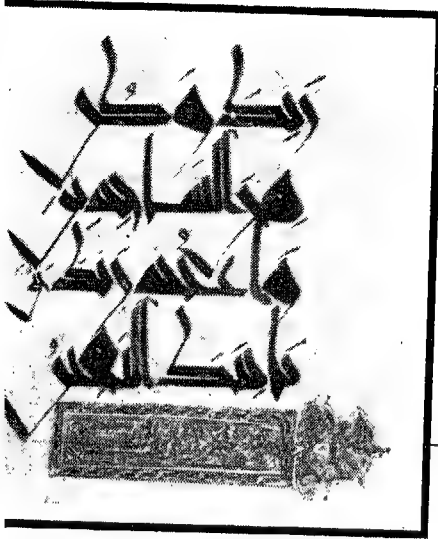 ربك وكن
من الساجدين
واعبد ربك حتى
يأتيك اليقين